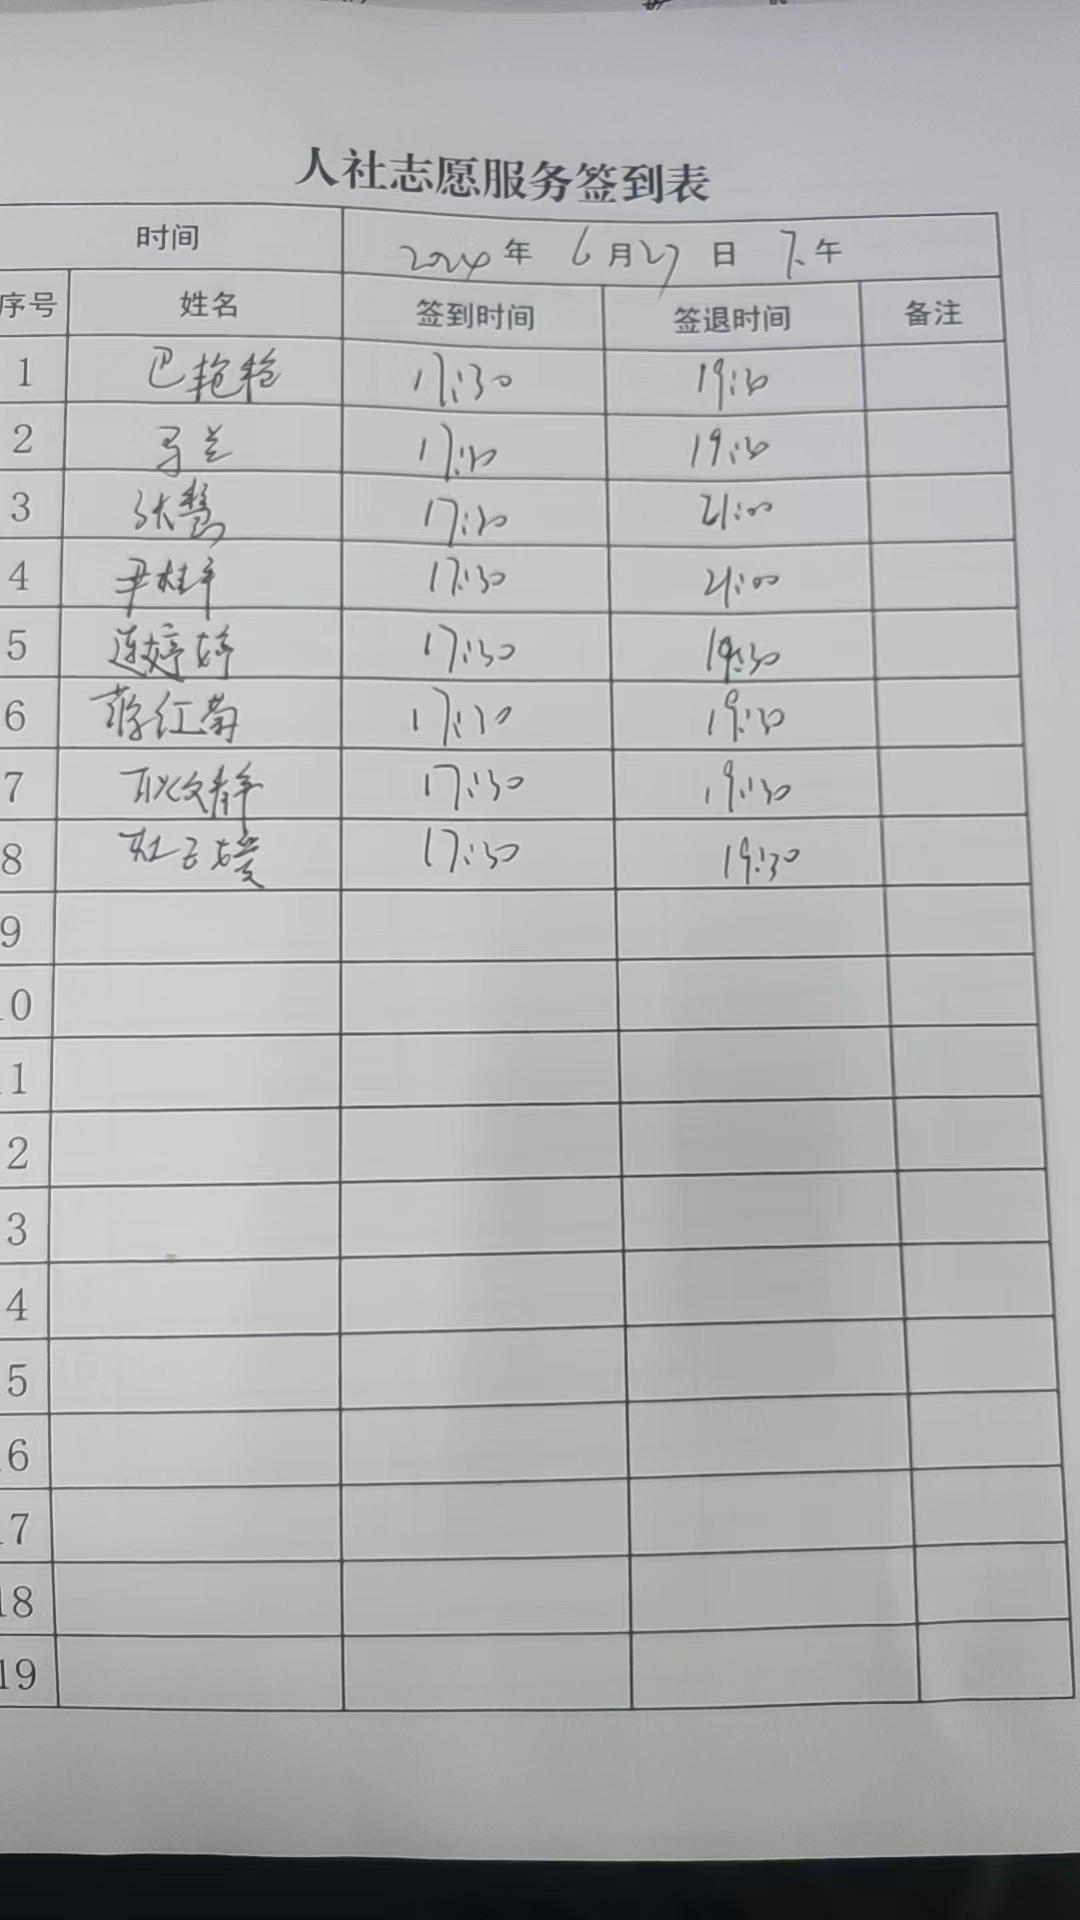 人社志愿服务签到表
时间 2024年 6月27日 下午
序号 姓名 签到时间 签退时间 备注
1 巴艳艳 17:30 19:30
2 马兰 17:30 19:30
3 张慧 17:30 21:00
4 尹桂平 17:30 21:00
5 连婷婷 17:30 19:30
6 薛红菊 17:30 19:30
7 耿文静 17:30 19:30
8 杜云媛 17:30 19:30
9
10
11
12
13
14
15
16
17
18
19